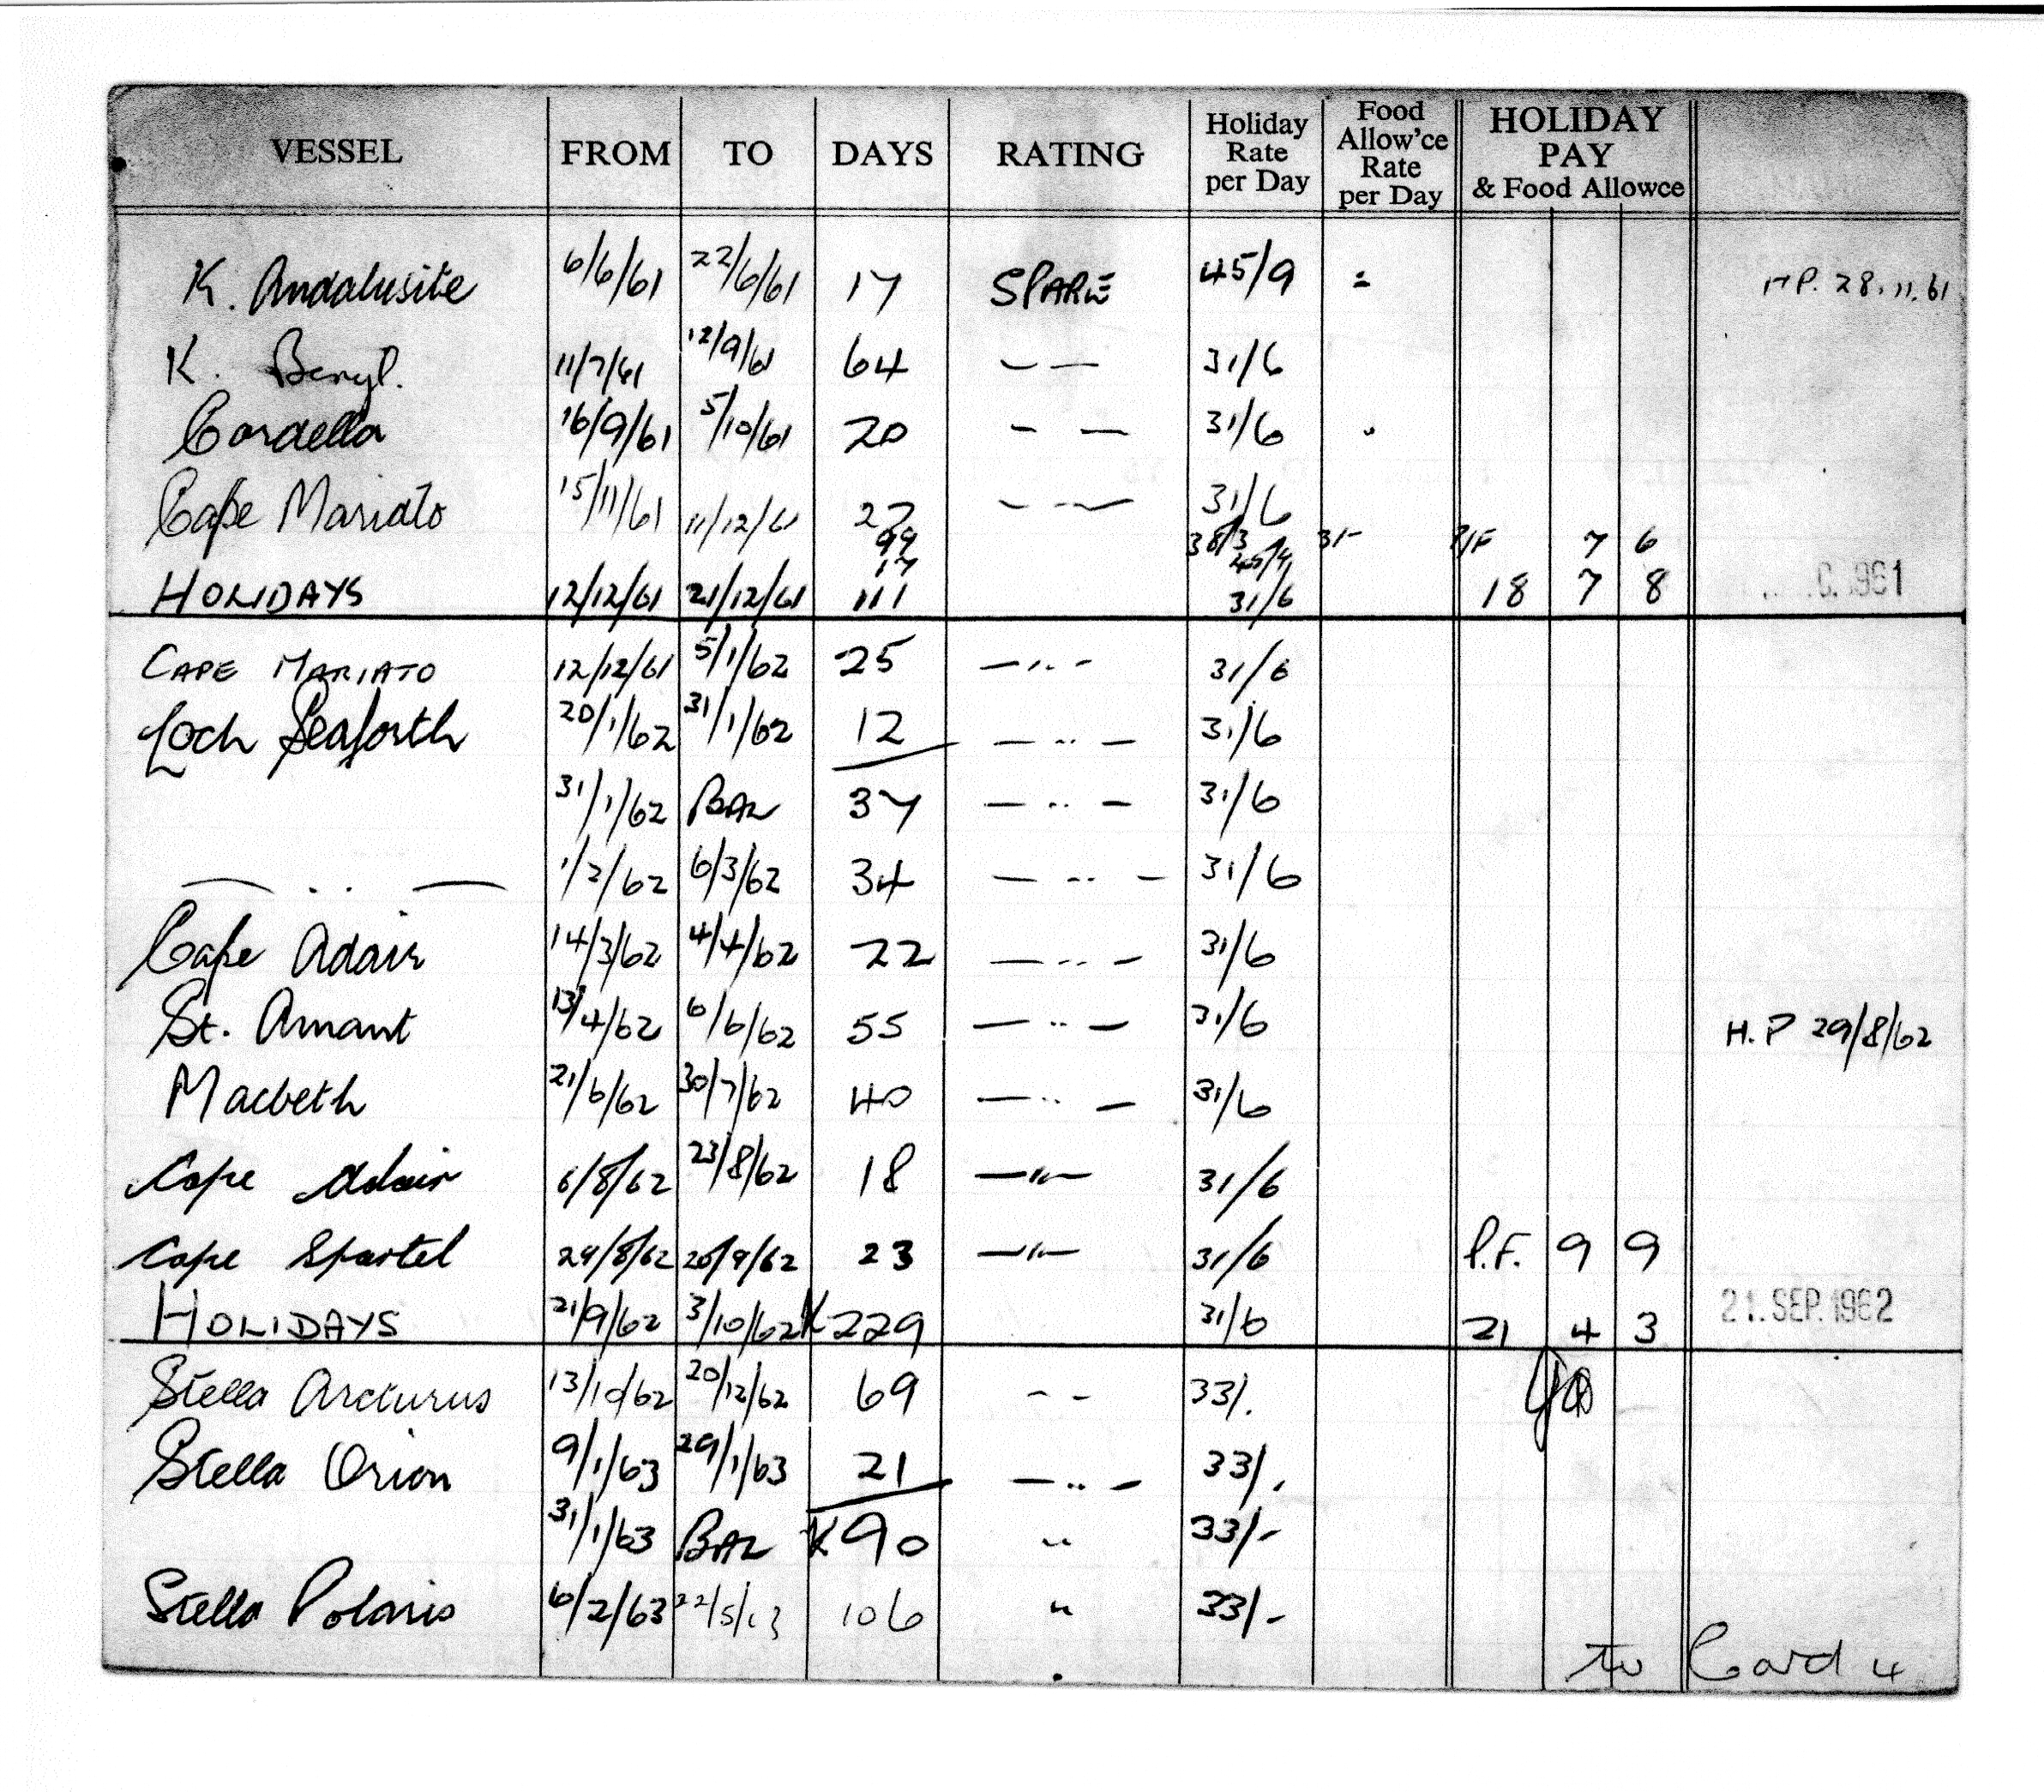 VESSEL FROM TO DAYS RATING Holiday Rate per Day Food Allow'ce Rate per Day HOLIDAY PAY & Food Allowce
K. Andalusite 6/6/61 22/6/61 17 SPARE 45/9 = HP. 28.11.61
K. Beryl. 11/7/61 12/9/61 64 — — 31/6
Cordella 16/9/61 5/10/61 20 — — 31/6
Cape Mariato 15/11/61 11/12/61 27 — — 31/6
99 38/3 31- 7 6
17 45/9
HOLIDAYS 12/12/61 21/12/61 111 31/6 18 7 8 1961
CAPE MARIATO 12/12/61 5/1/62 25 — " — 31/6
Loch Seaforth 20/1/62 31/1/62 12 — " — 31/6
31/1/62 BAL 37 — " — 31/6
— " — 1/2/62 6/3/62 34 — " — 31/6
Cape Adair 14/3/62 4/4/62 22 — " — 31/6
St. Amant 13/4/62 6/6/62 55 — " — 31/6 H.P 29/8/62
Macbeth 21/6/62 30/7/62 40 — " — 31/6
Cape Adair 6/8/62 23/8/62 18 — " — 31/6
Cape Spartel 29/8/62 20/9/62 23 — " — 31/6 P.F. 9 9
HOLIDAYS 21/9/62 3/10/62 K 229 31/6 21 4 3 21. SEP. 1962
Stella Arcturus 13/10/62 20/12/62 69 — — 33/.
Stella Orion 9/1/63 29/1/63 21 — " — 33/.
31/1/63 BAL K90 " 33/-
Stella Polaris 6/2/63 22/5/63 106 " 33/-
to Card 4